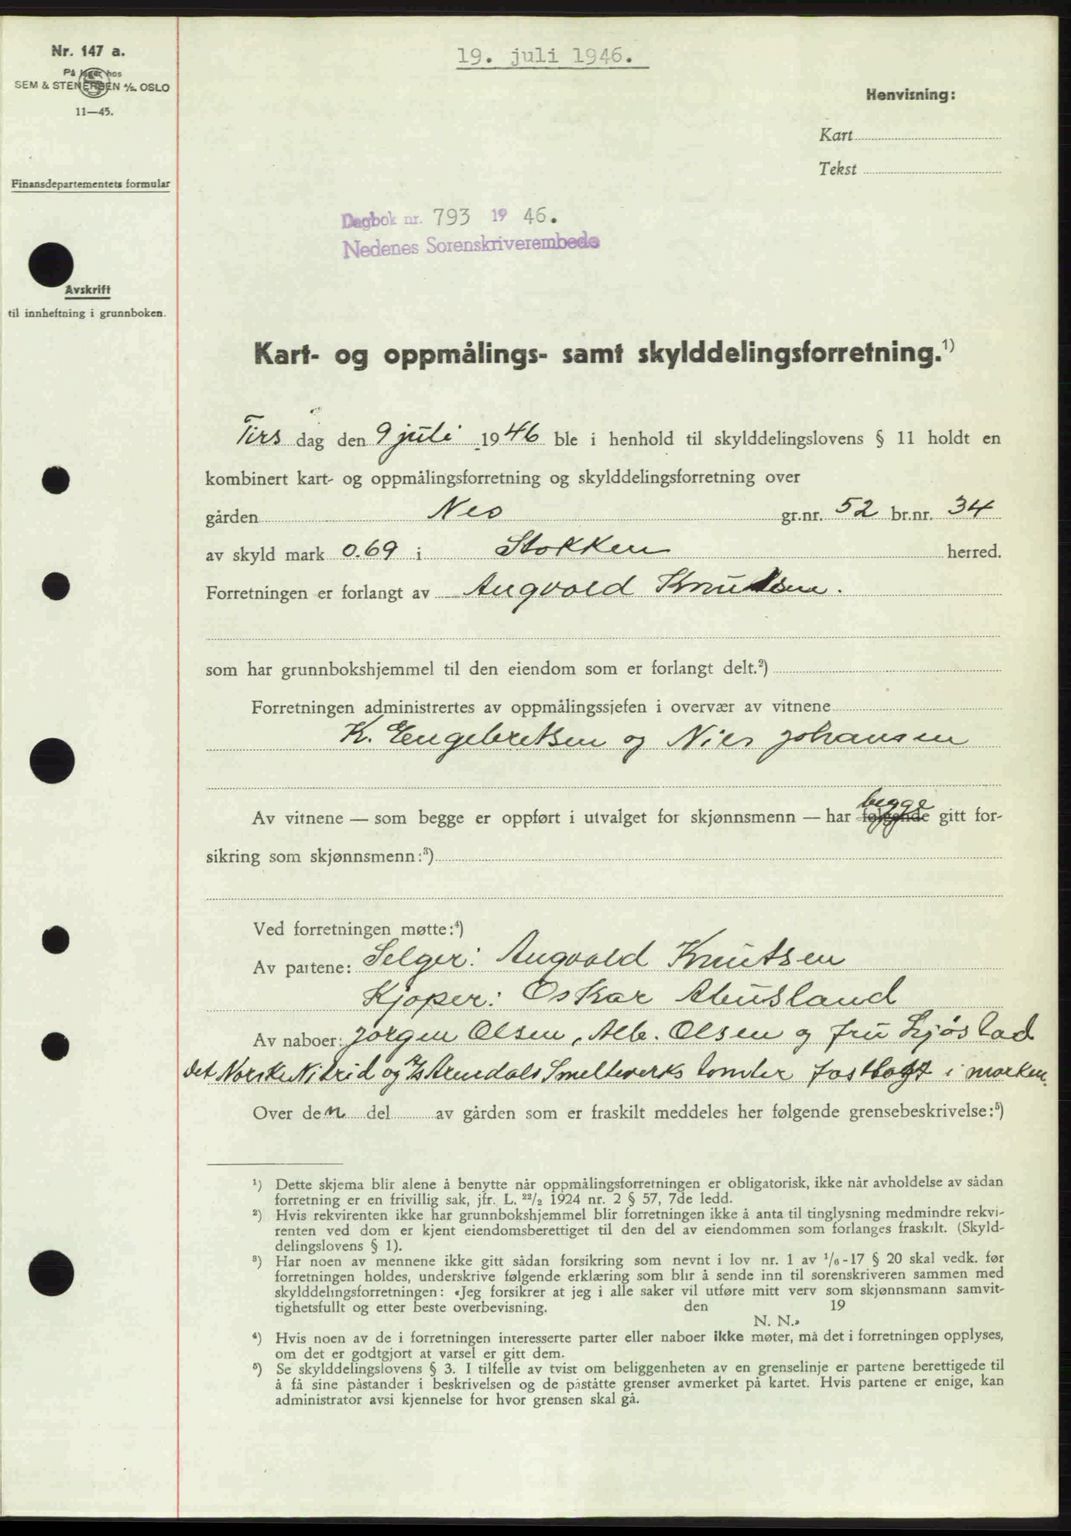 Nr. 147 a.
På lager hos
SEM & STENERSEN A/S. OSLO
11—45.
Finansdepartementets formular
Avskrift
til innheftning i grunnboken.
19. juli 1946.
Henvisning:
Kart
Tekst
Dagbok nr. 793 19 46.
Nedenes Sorenskriverembede
Kart- og oppmålings- samt skylddelingsforretning.¹)
Tirs dag den 9 juli 1946 ble i henhold til skylddelingslovens § 11 holdt en
kombinert kart- og oppmålingsforretning og skylddelingsforretning over
gården Neo gr.nr. 52 br.nr. 34
av skyld mark 0.69 i Stokken herred.
Forretningen er forlangt av Augvald Knutsen.
som har grunnbokshjemmel til den eiendom som er forlangt delt.²)
Forretningen administrertes av oppmålingssjefen i overvær av vitnene
K. Engebretsen og Nies Johansen
begge
Av vitnene — som begge er oppført i utvalget for skjønnsmenn — har følgende gitt for-
sikring som skjønnsmenn:³)
Ved forretningen møtte:⁴)
Av partene: Selger: Augvald Knutsen
Kjøper: Oskar Abusland
Av naboer: Jørgen Olsen, Alb. Olsen og fru Sjøstad
det Norske Nitrid og A/S Arendals Smelteverks tomter fastlagt i marken.
Over den del av gården som er fraskilt meddeles her følgende grensebeskrivelse:⁵)
¹) Dette skjema blir alene å benytte når oppmålingsforretningen er obligatorisk, ikke når avholdelse av sådan
forretning er en frivillig sak, jfr. L. ²²/₂ 1924 nr. 2 § 57, 7de ledd.
²) Hvis rekvirenten ikke har grunnbokshjemmel blir forretningen ikke å anta til tinglysning medmindre rekvi-
renten ved dom er kjent eiendomsberettiget til den del av eiendommen som forlanges fraskilt. (Skyld-
delingslovens § 1).
³) Har noen av mennene ikke gitt sådan forsikring som nevnt i lov nr. 1 av ¹/₆-17 § 20 skal vedk. før
forretningen holdes, underskrive følgende erklæring som blir å sende inn til sorenskriveren sammen med
skylddelingsforretningen: «Jeg forsikrer at jeg i alle saker vil utføre mitt verv som skjønnsmann samvit-
tighetsfullt og etter beste overbevisning. den 19
N. N.»
⁴) Hvis noen av de i forretningen interesserte parter eller naboer ikke møter, må det i forretningen opplyses,
om det er godtgjort at varsel er gitt dem.
⁵) Se skylddelingslovens § 3. I tilfelle av tvist om beliggenheten av en grenselinje er partene berettigede til
å få sine påstander i beskrivelsen og de påståtte grenser avmerket på kartet. Hvis partene er enige, kan
administrator avsi kjennelse for hvor grensen skal gå.